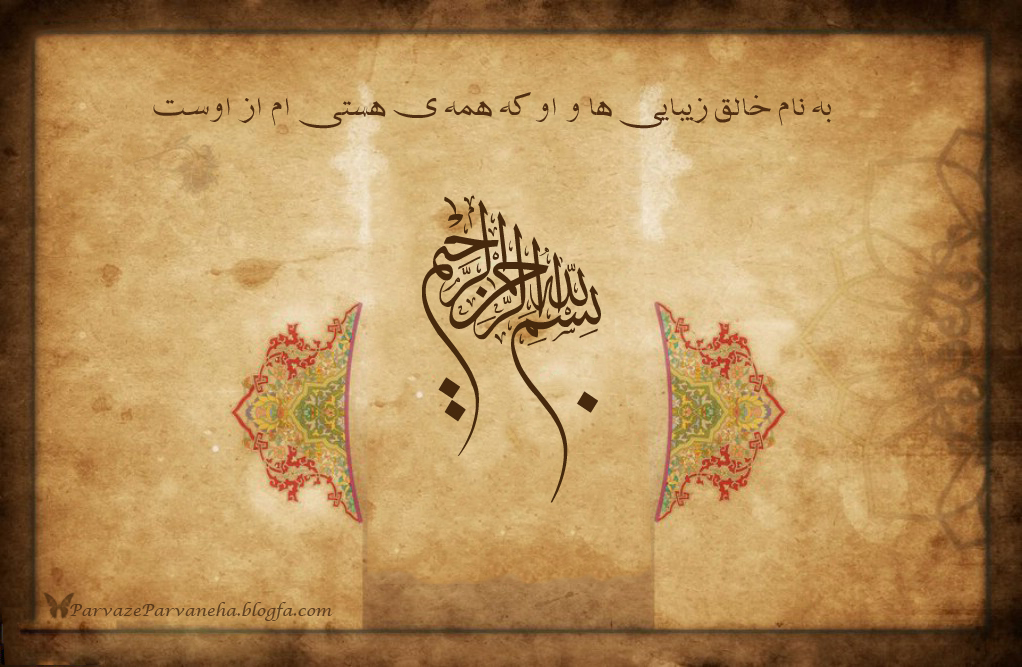 به نام خالق زیبایی ها و او که همه ی هستی ام از اوست
بسم الله الرحمن الرحیم
ParvazeParvaneha.blogfa.com